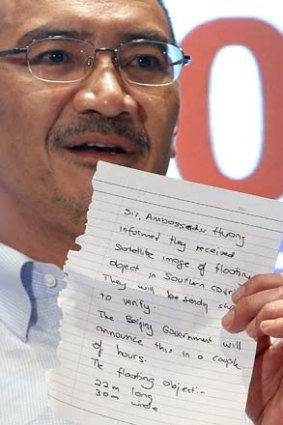 Sir, Ambassador Huang
informed they received
satellite image of floating
object in Southern corridor.
They will be sending ship
to verify.
The Beijing Government will
announce this in a couple
of hours.
The floating object:-
22m long
30m wide